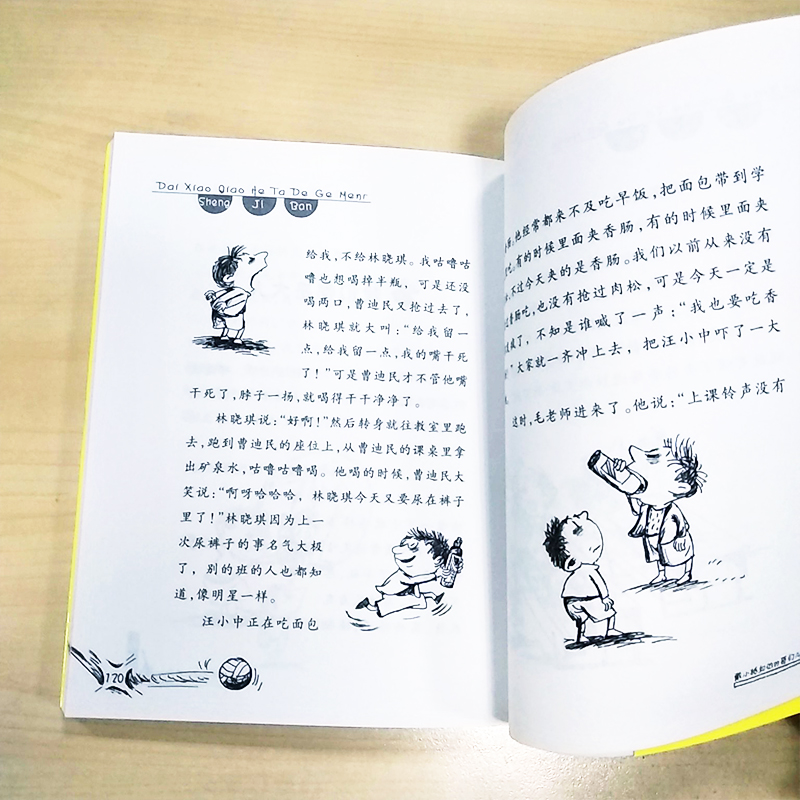 Dai Xiao Qiao He Ta De Ge Menr
Sheng Ji Ban
给我，不给林晓琪。我咕噜咕
噜也想喝掉半瓶，可是还没
喝两口，曹迪民又抢过去了，
林晓琪就大叫：“给我留一
点，给我留一点，我的嘴干死
了！”可是曹迪民才不管他嘴
干死了，脖子一扬，就喝得干干净净了。
林晓琪说：“好啊！”然后转身就往教室里跑
去，跑到曹迪民的座位上，从曹迪民的课桌里拿
出矿泉水，咕噜咕噜喝。他喝的时候，曹迪民大
笑说：“啊呀哈哈哈，林晓琪今天又要尿在裤子
里了！”林晓琪因为上一
次尿裤子的事名气大极
了，别的班的人也都知
道，像明星一样。
汪小中正在吃面包
120
他经常都来不及吃早饭，把面包带到学
吃。有的时候里面夹香肠，有的时候里面夹
不过今天夹的是香肠。我们以前从来没有
香肠吃，也没有抢过肉松，可是今天一定是
疯了，不知是谁喊了一声：“我也要吃香
”大家就一齐冲上去，把汪小中吓了一大
这时，毛老师进来了。他说：“上课铃声没有
戴小桥和他的哥们儿